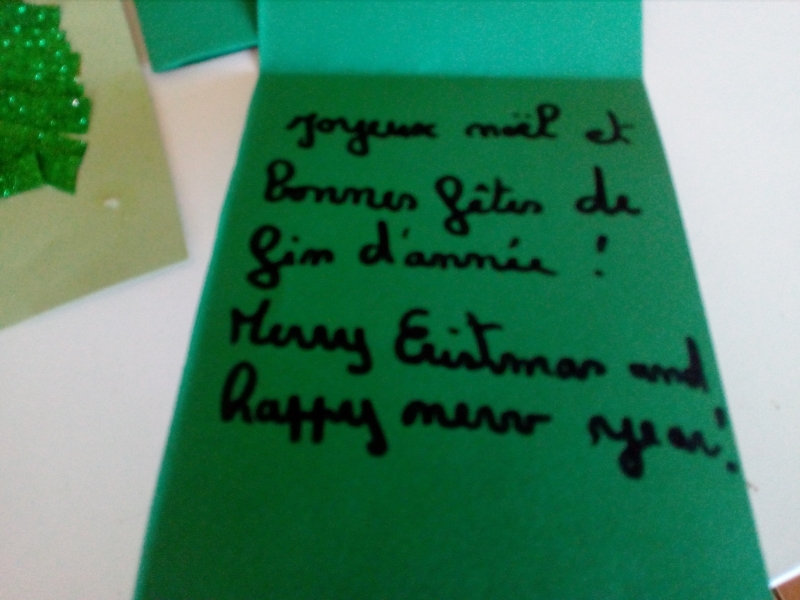 joyeux noël et
bonnes fêtes de
fin d'année !
Merry Cristmas and
happy new year!